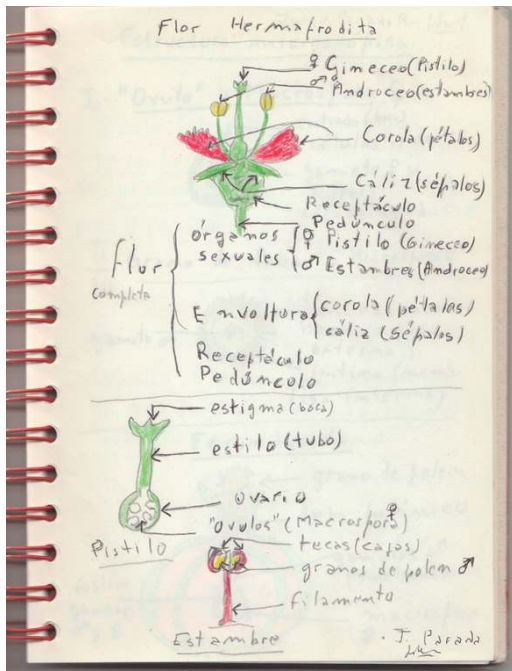 Flor Hermafrodita
♀ Gineceo (Pistilo)
♂ Androceo (estambres)
Corola (pétalos)
Cáliz (sépalos)
Receptáculo
Pedúnculo
Flor completa
órganos sexuales
♀ Pistilo (Gineceo)
♂ Estambres (Androceo)
Envoltura
corola (pétalos)
cáliz (sépalos)
Receptáculo
Pedúnculo
estigma (boca)
estilo (tubo)
ovario
"ovulos" (Macrospora) ♀
Pistilo
tecas (cajas)
granos de polen ♂
filamento
Estambre
J. Parada